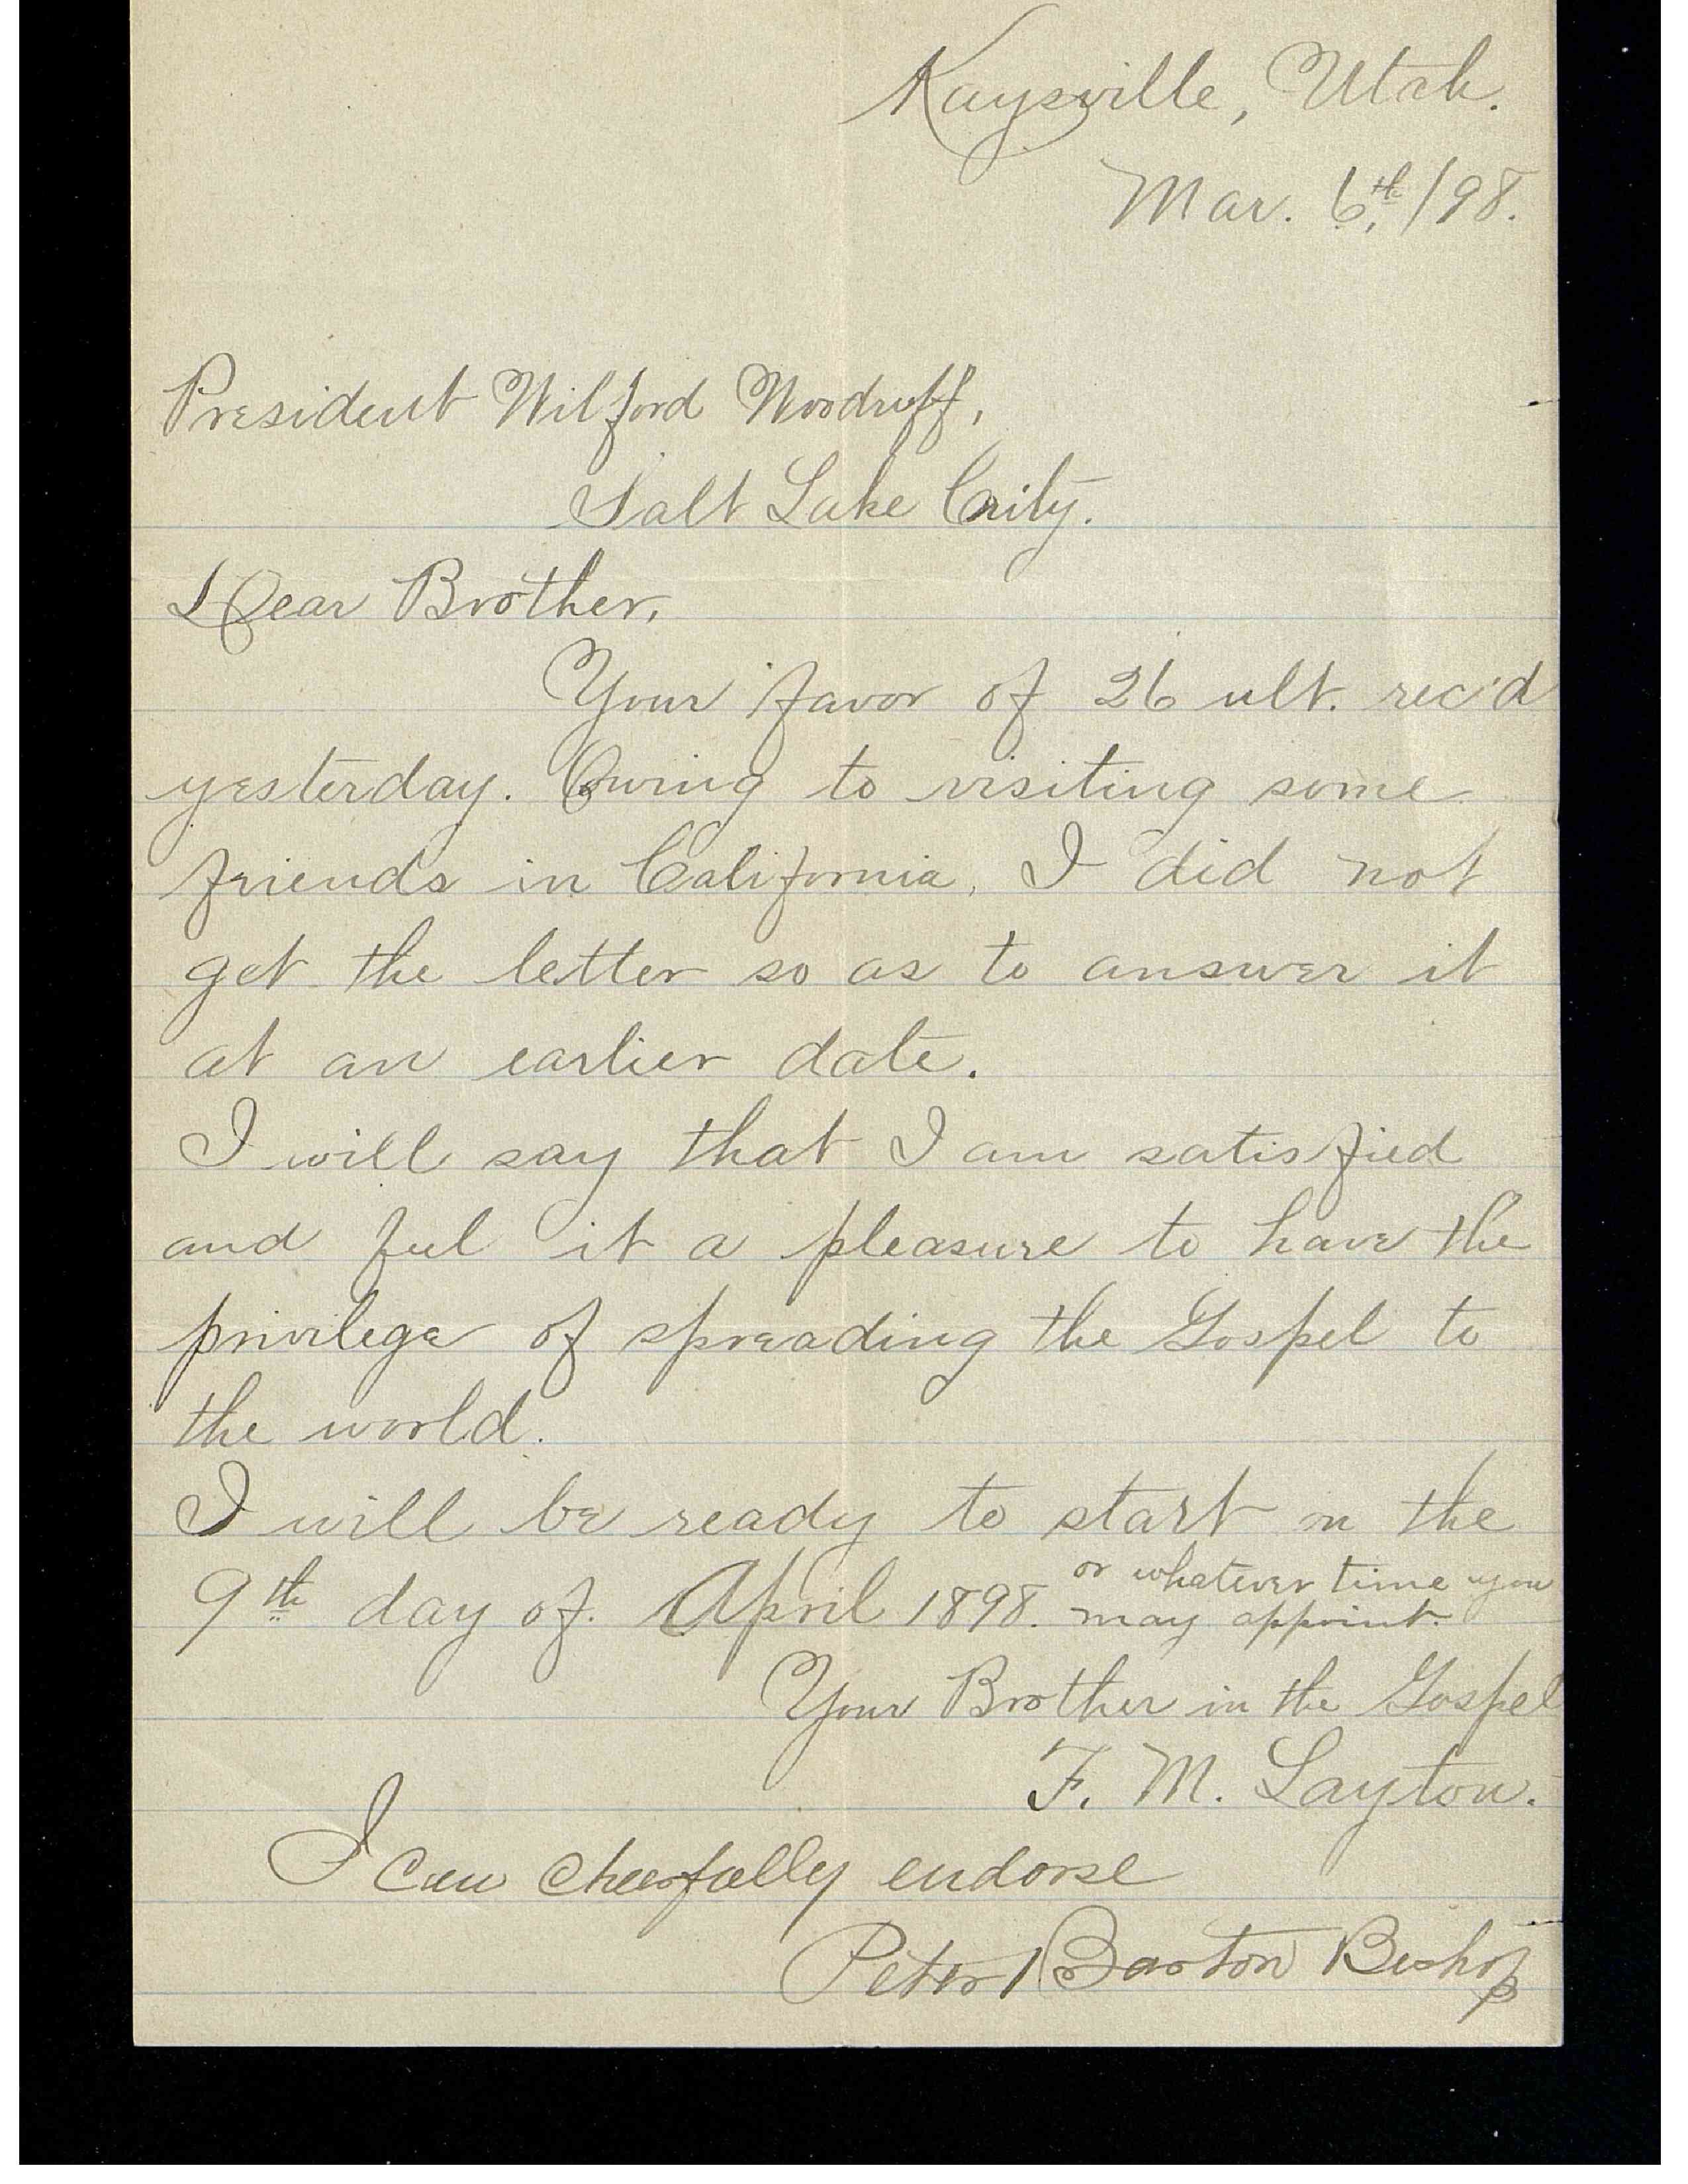 Kaysville, Utah.
Mar. 6th, /98.
President Wilford Woodruff,
Salt Lake City.
Dear Brother,
Your favor of 26 ult. rec'd
yesterday. Owing to visiting some
friends in California, I did not
get the letter so as to answer it
at an earlier date.
I will say that I am satisfied
and feel it a pleasure to have the
privilege of spreading the Gospel to
the world.
I will be ready to start on the
9th day of April 1898. or whatever time you
may appoint.
Your Brother in the Gospel
F. M. Layton.
I can cheerfully endorse
Peter Barton Bishop